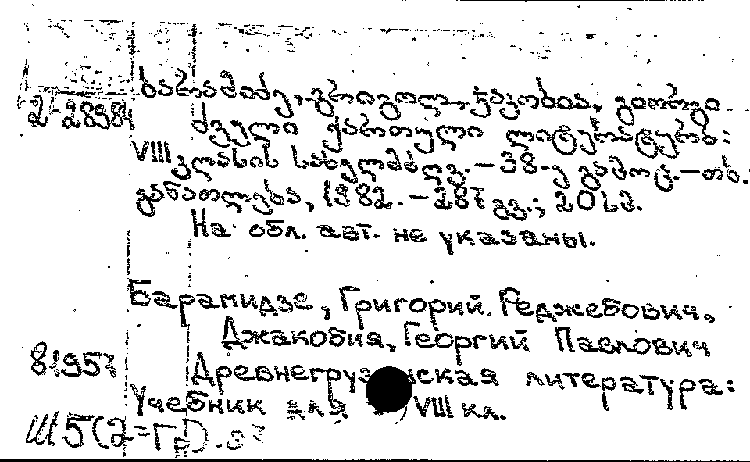 2-28984
ბარამიძე, გრიგოლ, ჯაკობია, გიორგი
ძველი ქართული ლიტერატურა:
VIII კლასის სახელმძღვ.—38-ე გამოც.—თბ.:
განათლება, 1982.—287 გვ.; 20 სმ.
На обл. авт. не указаны.
Барамидзе, Григорий Реджебович,
Джакобия, Георгий Павлович
81957
Древнегрузинская литература:
Учебник для VIII кл.
Ш5(2=Гр)